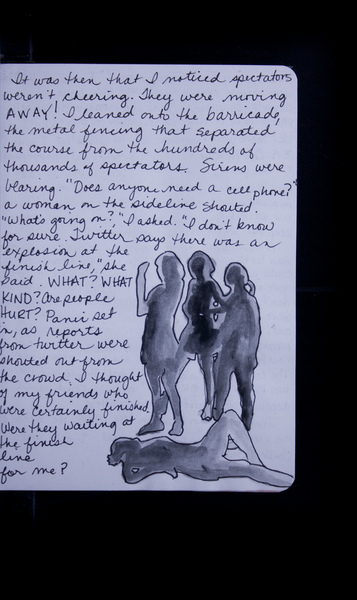 It was then that I noticed spectators
weren't cheering. They were moving
AWAY! I leaned onto the barricade,
the metal fencing that separated
the course from the hundreds of
thousands of spectators. Sirens were
blaring. "Does anyone need a cell phone?"
a woman on the sideline shouted.
"What's going on?," I asked. "I don't know
for sure. Twitter says there was an
explosion at the
finish line," she
said. WHAT? WHAT
KIND? Are people
HURT? Panic set
in, as reports
from twitter were
shouted out from
the crowd. I thought
of my friends who
were certainly finished.
Were they waiting at
the finish
line
for me?